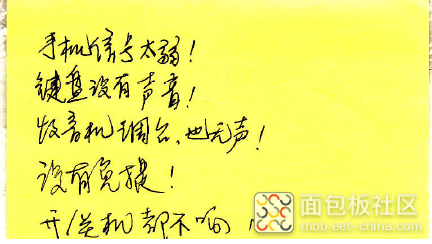 手机信号太弱！
键盘没有声音！
收音机调台，也无声！
没有免提！
开/关机都不响！
面包板社区
mbb.eet-china.com